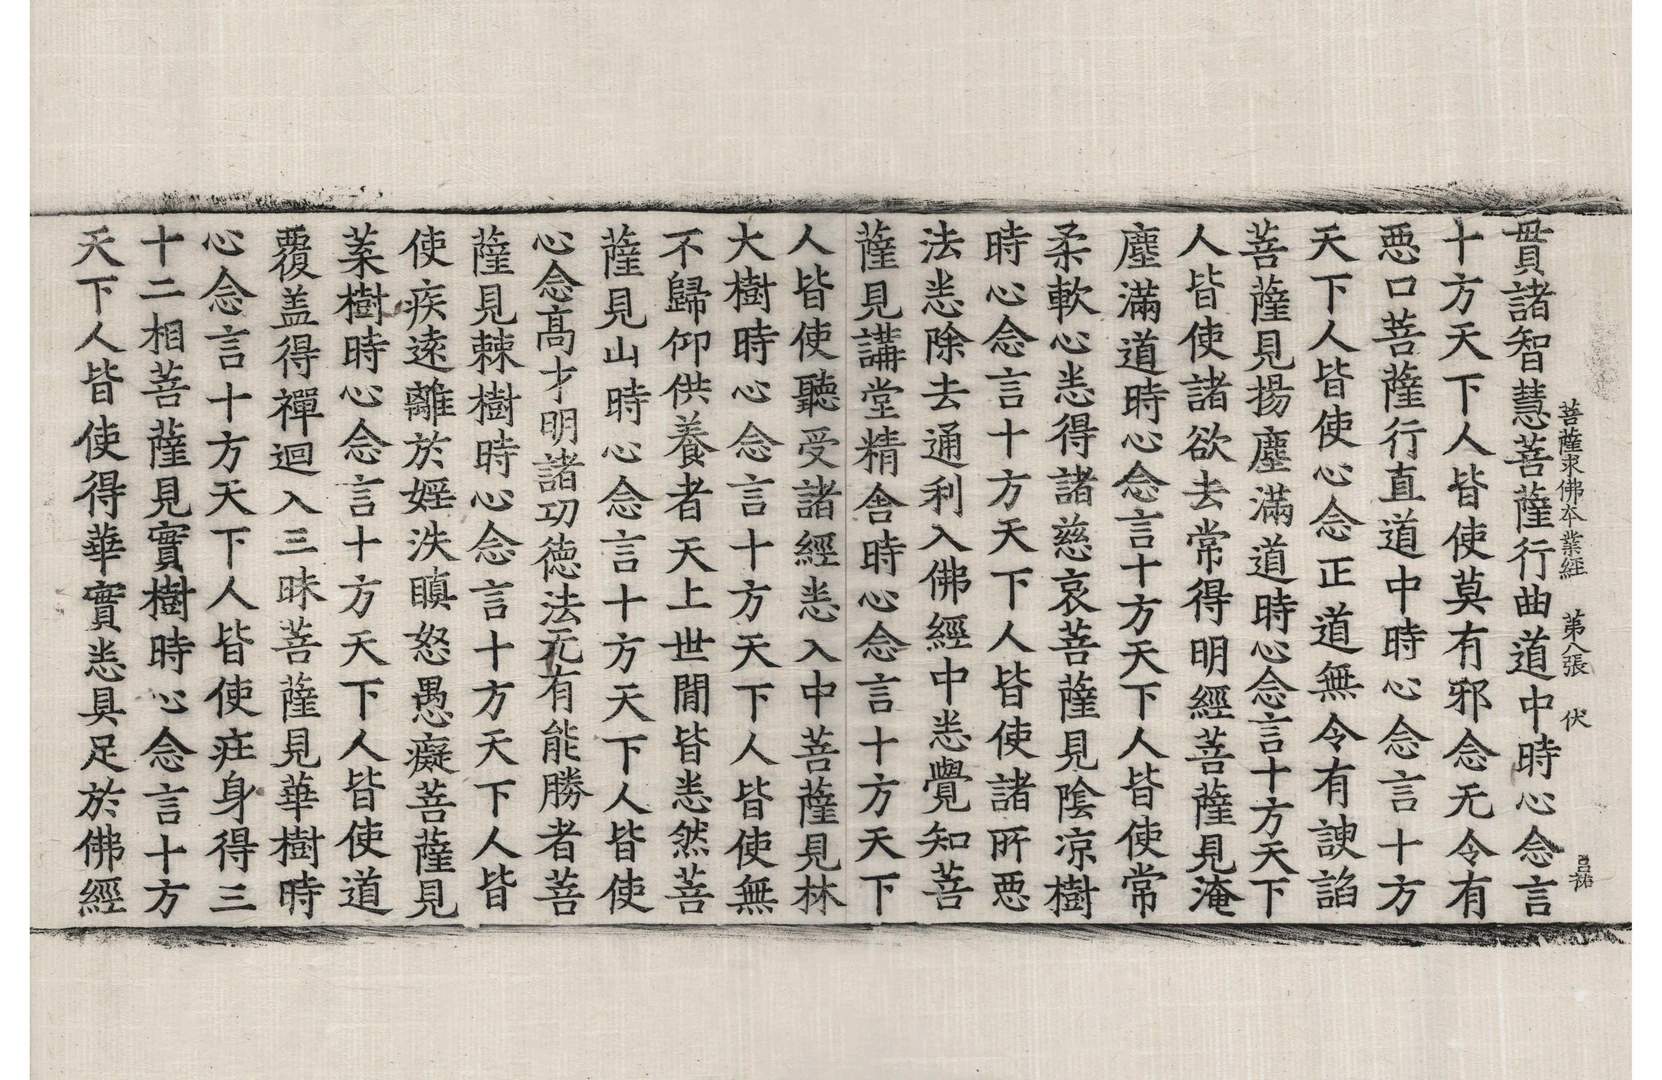 菩薩求佛本業經 第八張 伏
貫諸智慧菩薩行曲道中時心念言
十方天下人皆使莫有邪念无令有
惡口菩薩行直道中時心念言十方
天下人皆使心念正道無令有諛諂
菩薩見揚塵滿道時心念言十方天下
人皆使諸欲去常得明經菩薩見淹
塵滿道時心念言十方天下人皆使常
柔軟心悉得諸慈哀菩薩見陰涼樹
時心念言十方天下人皆使諸所惡
法悉除去通利入佛經中悉覺知菩
薩見講堂精舍時心念言十方天下
人皆使聽受諸經悉入中菩薩見林
大樹時心念言十方天下人皆使無
不歸仰供養者天上世閒皆悉然菩
薩見山時心念言十方天下人皆使
心念高才明諸功德法无有能勝者菩
薩見棘樹時心念言十方天下人皆
使疾遠離於婬泆瞋怒愚癡菩薩見
葉樹時心念言十方天下人皆使道
覆盖得禪迴入三昧菩薩見華樹時
心念言十方天下人皆使疰身得三
十二相菩薩見實樹時心念言十方
天下人皆使得華實悉具足於佛經